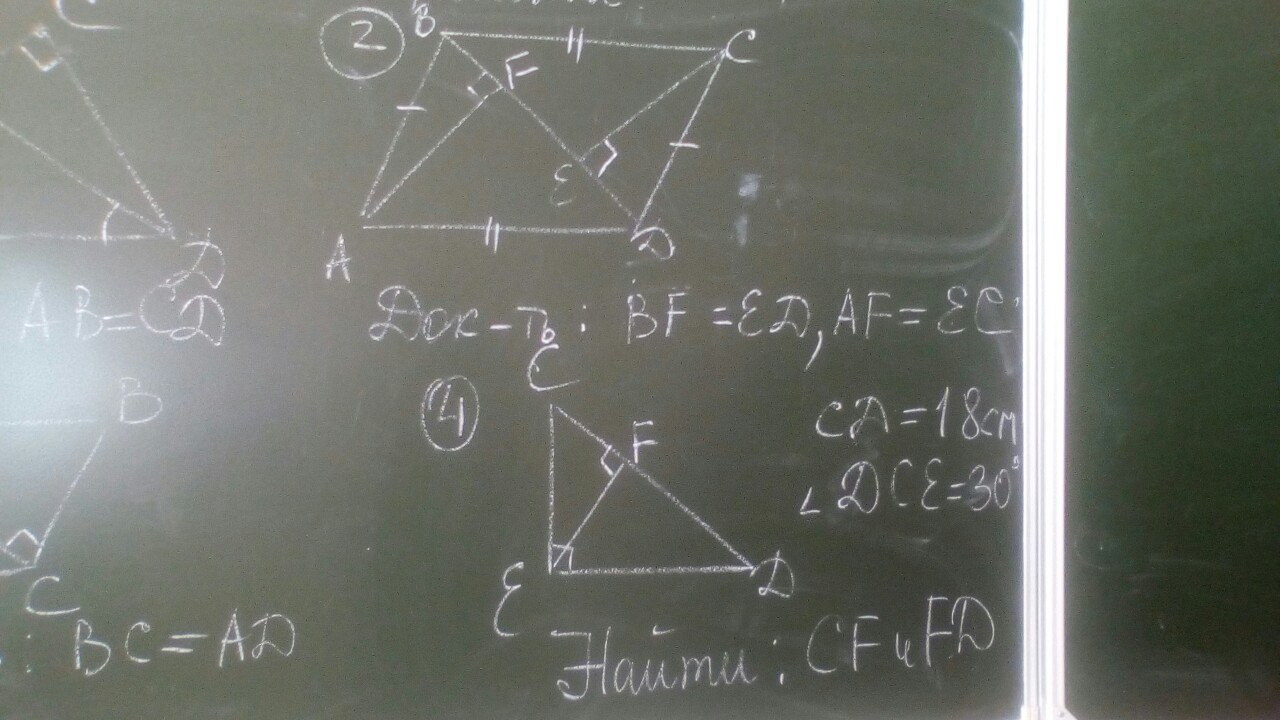 C
2
B
C
F
E
A
D
D
AB=CD
Док-ть: BF=ED, AF=EC
B
4
C
F
CD=18см
∠DCE=30°
C
E
D
: BC=AD
Найти: CF и FD